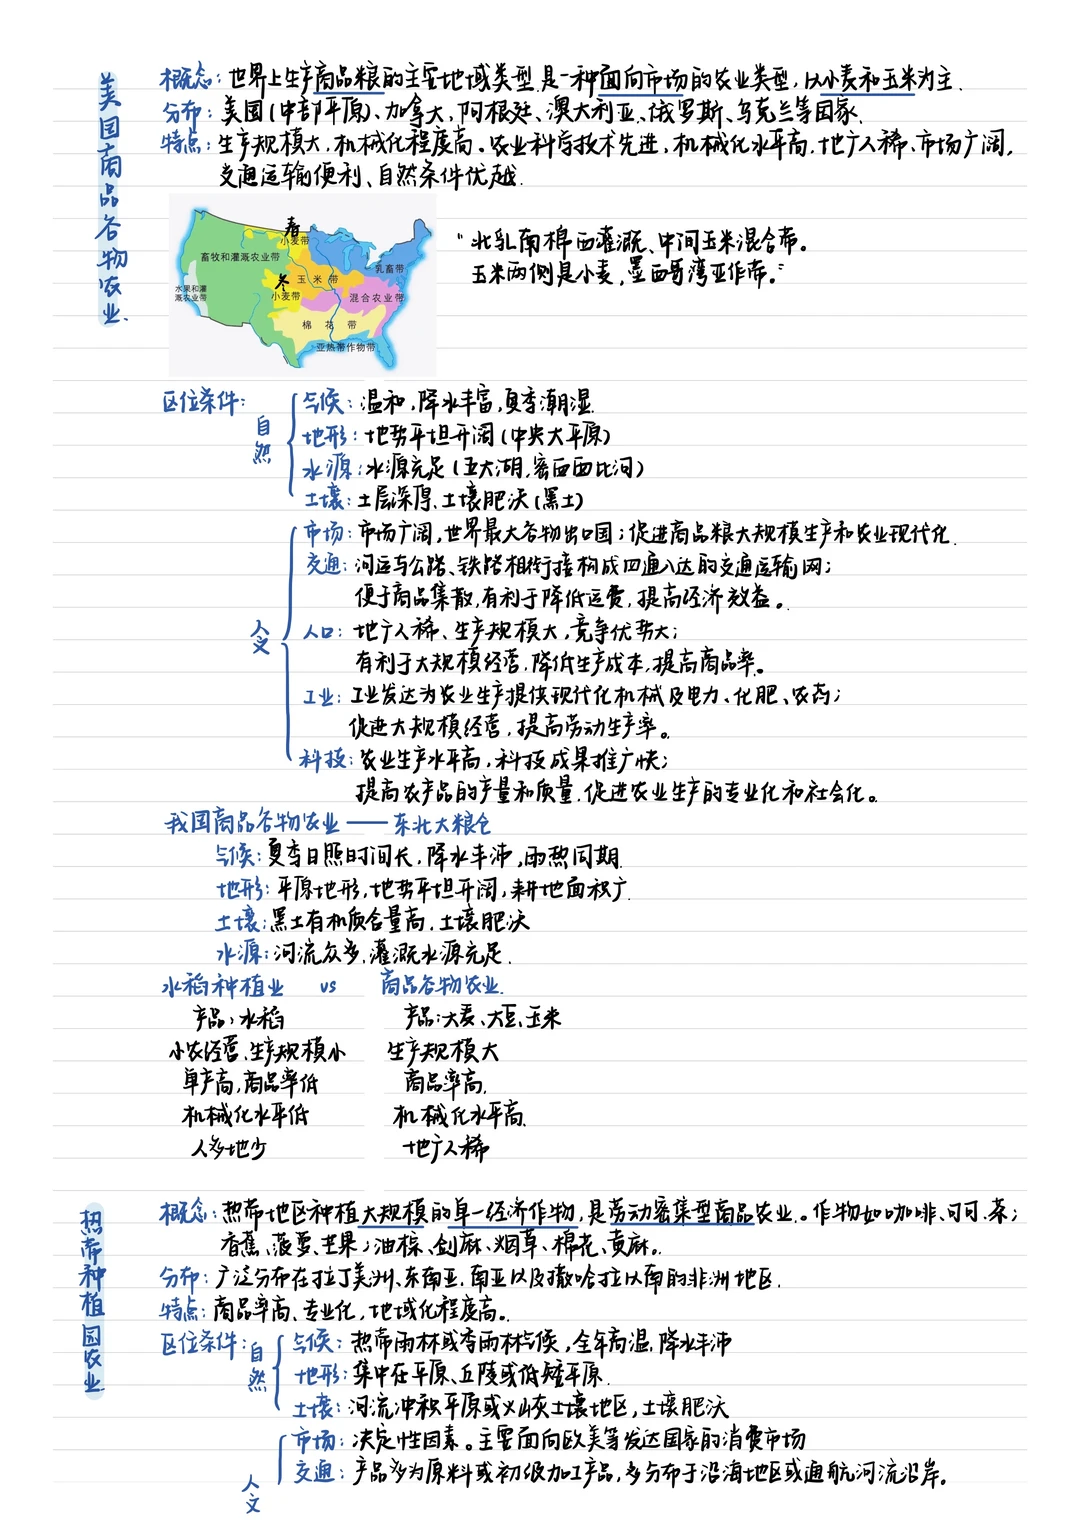 美国商品谷物农业.
概念:世界上生产商品粮的主要地域类型.是一种面向市场的农业类型,以小麦和玉米为主.
分布:美国(中部平原)、加拿大,阿根廷、澳大利亚、俄罗斯、乌克兰等国家.
特点:生产规模大,机械化程度高。农业科学技术先进,机械化水平高,地广人稀、市场广阔,
交通运输便利、自然条件优越.
春
小麦带
畜牧和灌溉农业带
乳畜带
冬
玉米带
水果和灌
溉农业带
小麦带
混合农业带
棉花带
亚热带作物带
“北乳南棉西灌溉、中间玉米混合带。
玉米两侧是小麦,墨西哥湾亚作带。”
区位条件:
自然
气候:温和,降水丰富,夏季潮湿.
地形:地势平坦开阔(中央大平原)
水源:水源充足(五大湖,密西西比河)
土壤:土层深厚、土壤肥沃(黑土)
人文
市场:市场广阔,世界最大谷物出口国;促进商品粮大规模生产和农业现代化.
交通:河运与公路、铁路相衔接构成四通八达的交通运输网;
便于商品集散,有利于降低运费,提高经济效益。.
人口:地广人稀、生产规模大,竞争优势大;
有利于大规模经营,降低生产成本,提高商品率。
工业:工业发达为农业生产提供现代化机械及电力、化肥、农药;
促进大规模经营,提高劳动生产率。
科技:农业生产水平高,科技成果推广快;
提高农产品的产量和质量.促进农业生产的专业化和社会化。
我国商品谷物农业——东北大粮仓
气候:夏季日照时间长,降水丰沛,雨热同期.
地形:平原地形,地势平坦开阔,耕地面积广.
土壤:黑土有机质含量高,土壤肥沃
水源:河流众多,灌溉水源充足.
水稻种植业 vs 商品谷物农业.
产品:水稻 产品:大麦、大豆、玉米
小农经营、生产规模小 生产规模大
单产高,商品率低 商品率高.
机械化水平低 机械化水平高.
人多地少 地广人稀
热带种植园农业
概念:热带地区种植大规模的单一经济作物,是劳动密集型商品农业。.作物如咖啡、可可、茶;
香蕉、菠萝、芒果;油棕、剑麻、烟草、棉花、黄麻。.
分布:广泛分布在拉丁美洲、东南亚.南亚以及撒哈拉以南的非洲地区.
特点:商品率高、专业化,地域化程度高。
区位条件:
自然
气候:热带雨林或季雨林气候,全年高温,降水丰沛
地形:集中在平原、丘陵或低矮平原.
土壤:河流冲积平原或火山灰土壤地区,土壤肥沃
人文
市场:决定性因素。主要面向欧美等发达国家的消费市场
交通:产品多为原料或初级加工产品,多分布于沿海地区或通航河流沿岸。